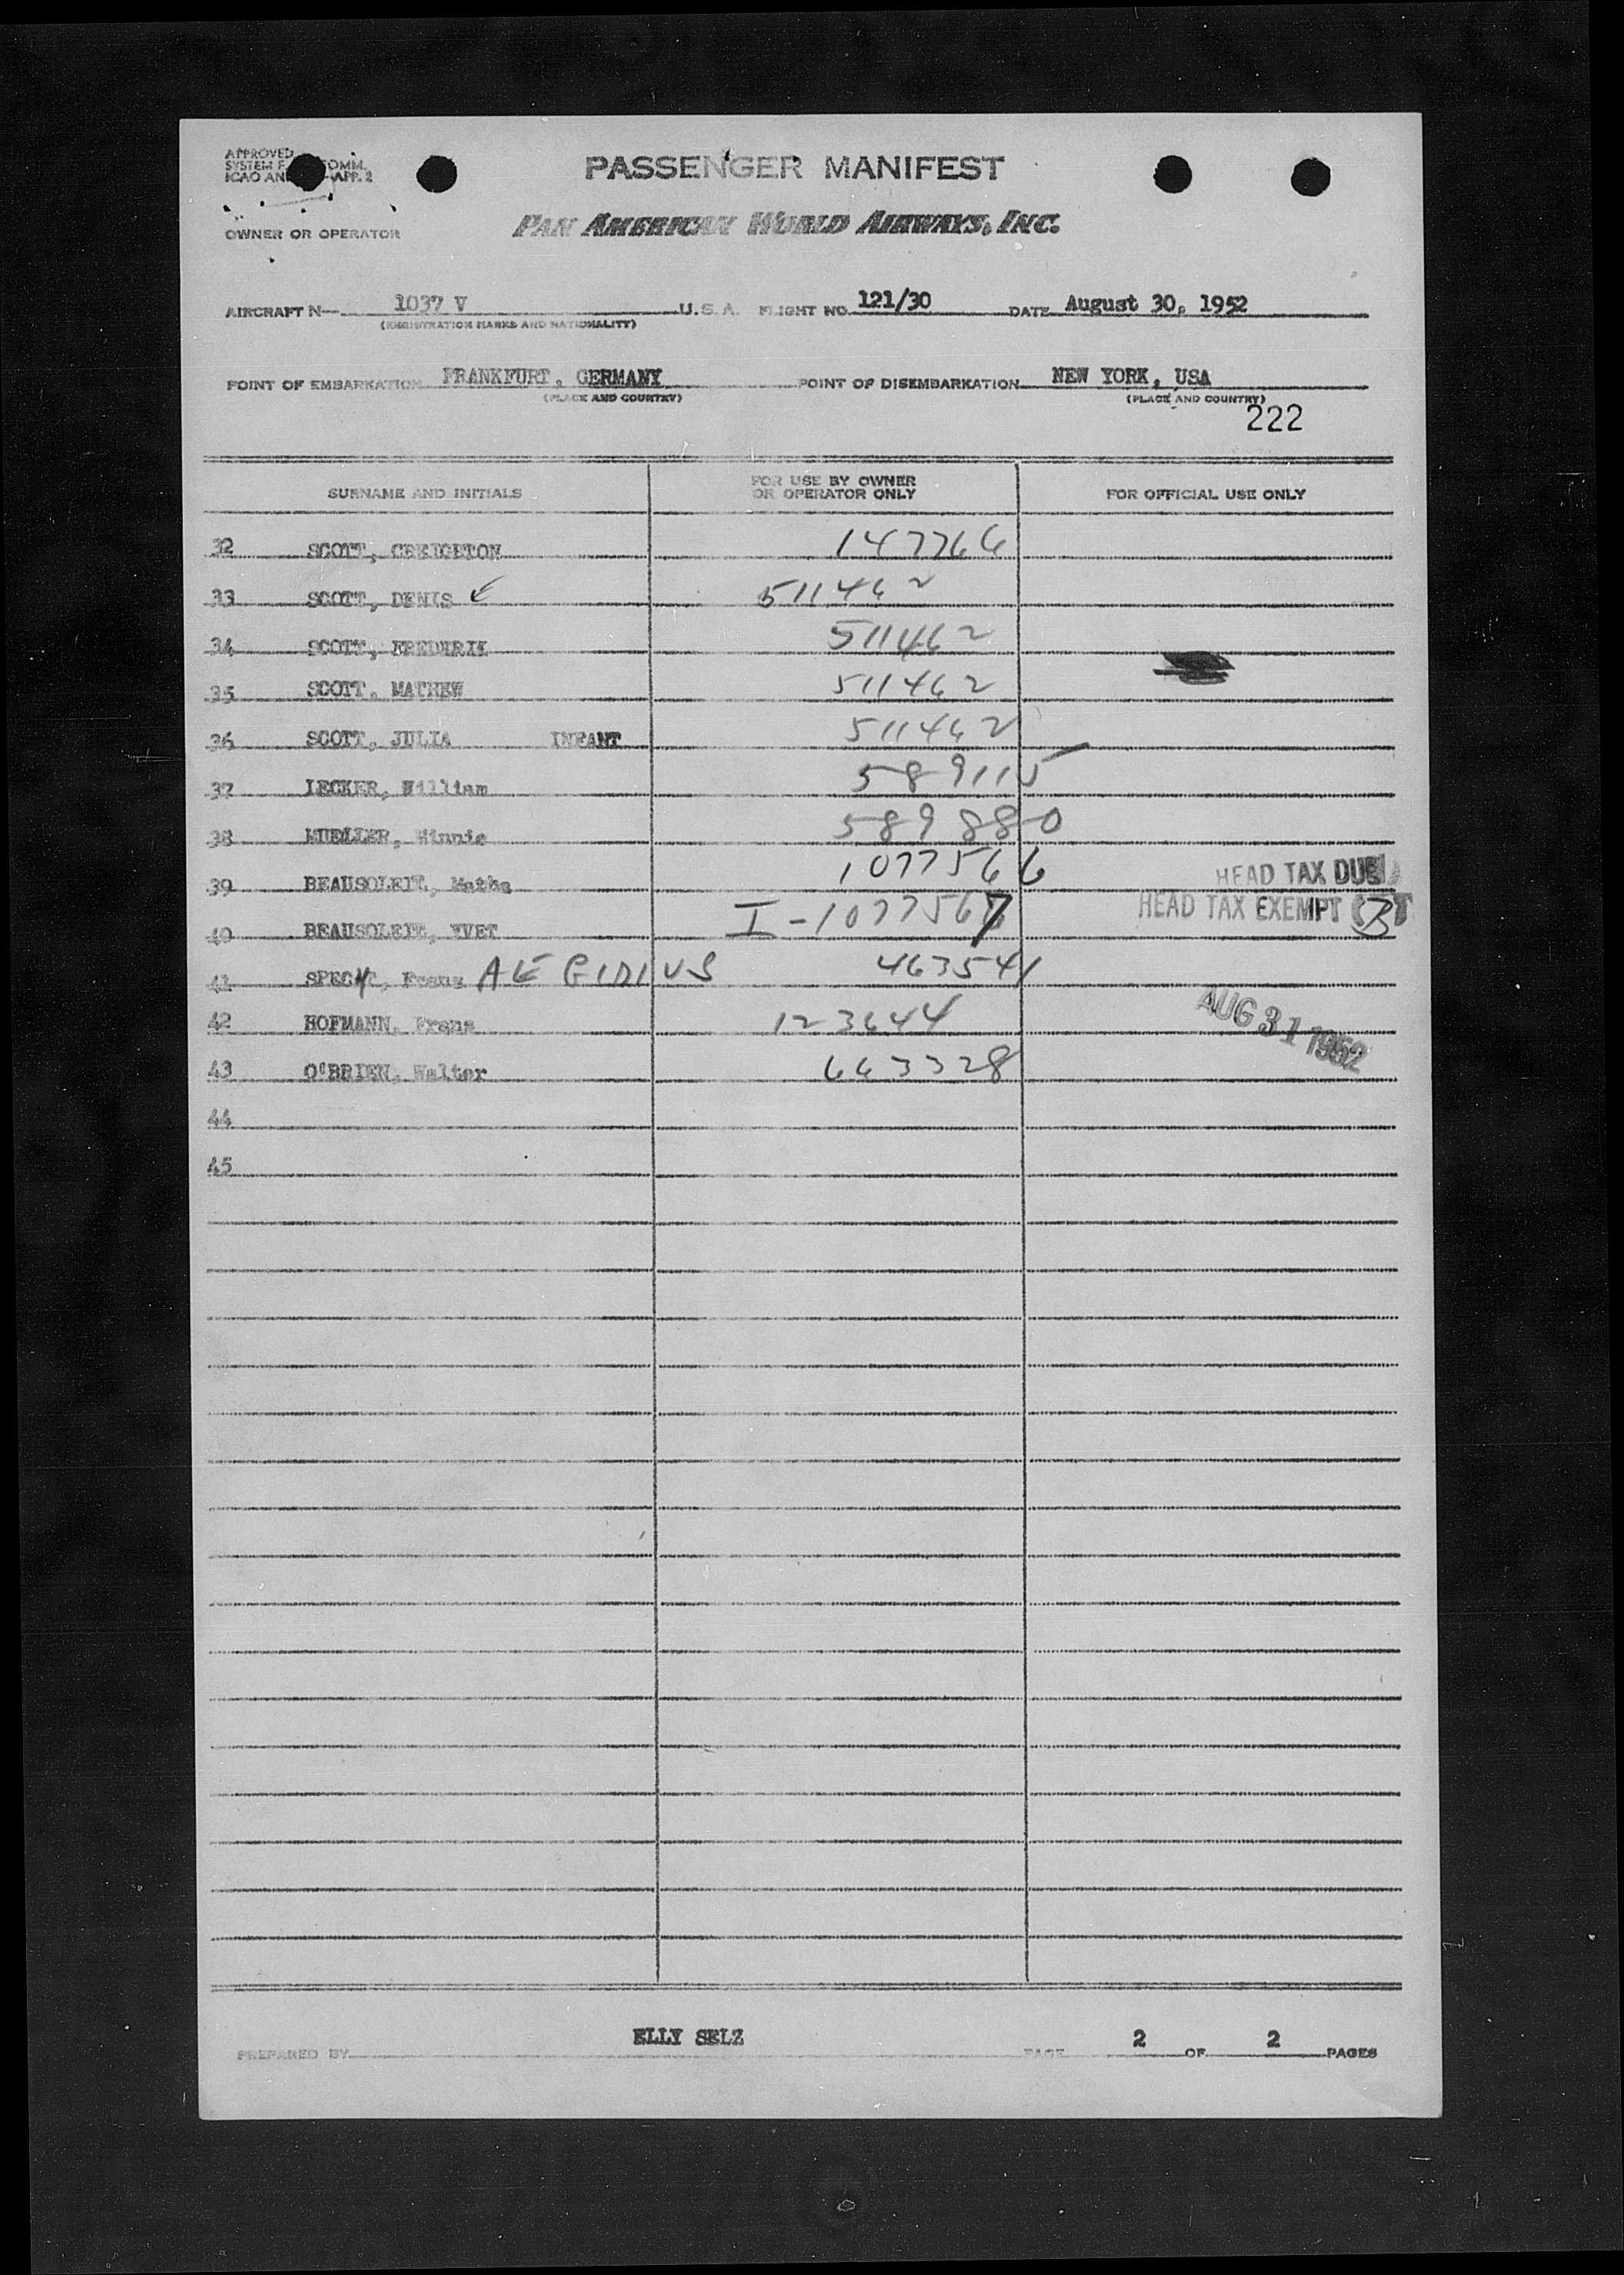 APPROVED
SYSTEM F COMM.
ICAO AN APP. 2
PASSENGER MANIFEST
PAN AMERICAN WORLD AIRWAYS, INC.
OWNER OR OPERATOR
AIRCRAFT N— 1037 V U. S. A. FLIGHT NO. 121/30 DATE August 30, 1952
(REGISTRATION MARKS AND NATIONALITY)
POINT OF EMBARKATION FRANKFURT, GERMANY POINT OF DISEMBARKATION NEW YORK, USA
(PLACE AND COUNTRY) (PLACE AND COUNTRY)
222
SURNAME AND INITIALS FOR USE BY OWNER OR OPERATOR ONLY FOR OFFICIAL USE ONLY
32 SCOTT, CREIGHTON 147766
33 SCOTT, DENIS 511462
34 SCOTT, FREDERIK 511462
35 SCOTT, MATHEW 511462
36 SCOTT, JULIA INFANT 511462
37 LECKER, William 589115
38 MUELLER, Minnie 589880
39 BEAUSOLEIL, 1077566 HEAD TAX DUE
40 BEAUSOLEIL, YVET I-1077567 HEAD TAX EXEMPT
41 SPECHT, Franz AEGIDIUS 463541
42 HOFMANN, Frans 123644 AUG 31 1952
43 O'BRIEN, Walter 663328
44
45
PREPARED BY ELLY SELZ PAGE 2 OF 2 PAGES